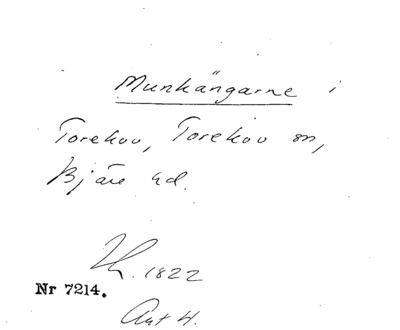 Munkängarne i
Torekov, Torekov sn,
Bjäre hd.
Th. 1822
Nr 7214.
Ant 4.